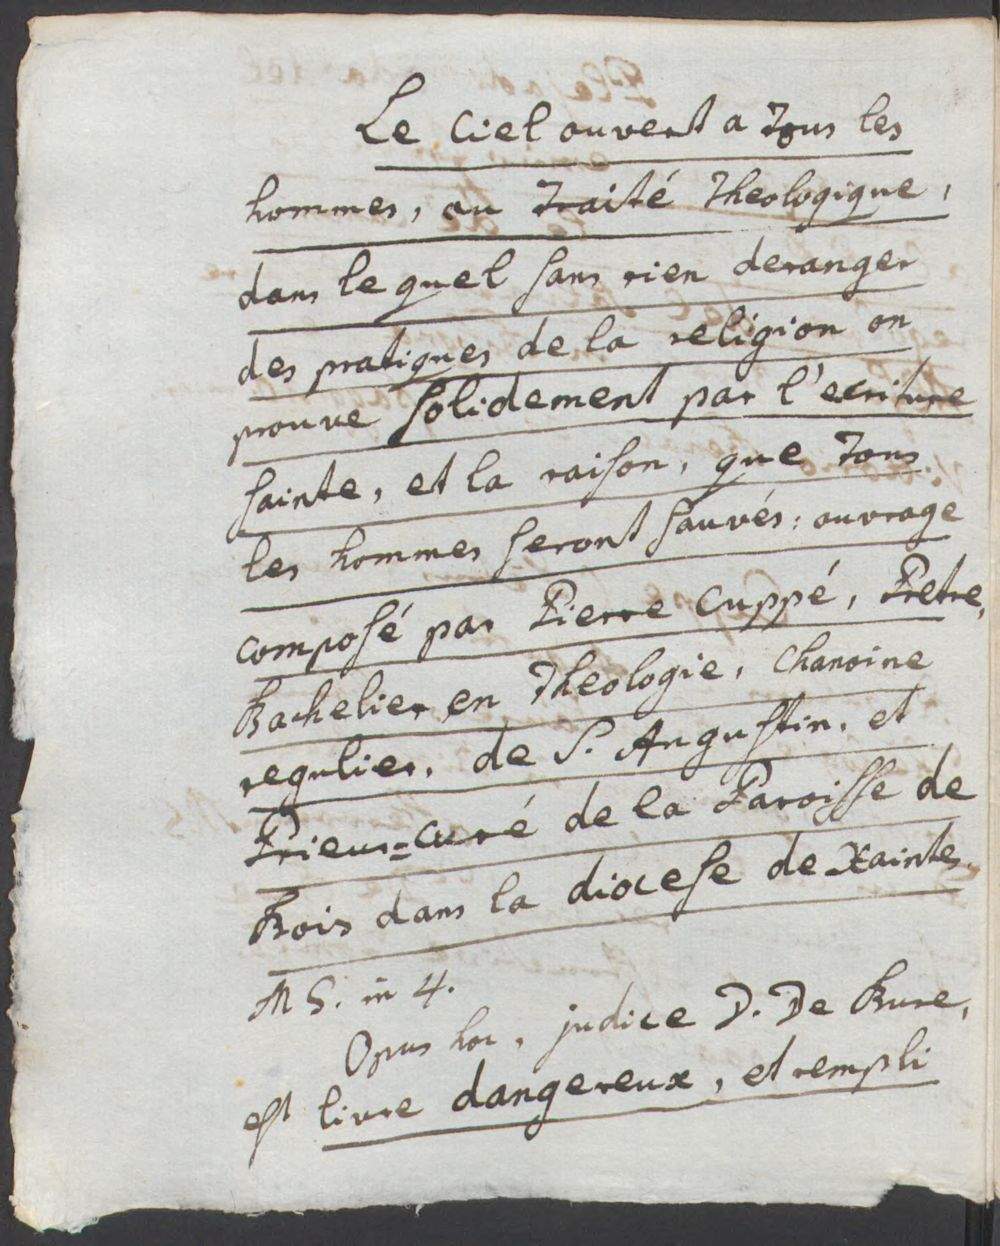 Le Ciel ouvert a Tous les
hommes, ou Traité Theologique,
dans le quel sans rien deranger
des pratiques de la religion on
prouve solidement par l'ecriture
sainte, et la raison, que Tous
les hommes seront sauvés: ouvrage
composé par Pierre Cuppé, Pretre,
Bachelier en Theologie, Chanoine
regulier, de S. Augustin, et
Prieur=curé de la Paroisse de
Bois dans la diocese de Xaintes.
MS. in 4.
Opus hoc, judice D. De Bure,
est livre dangereux, et rempli